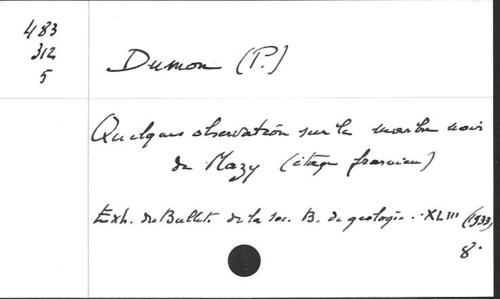 483
312
5
Dumon (P.)
Quelques observation sur le marbre noir
de Mazy (étage frasnien)
Extr. du Bullet. de la soc. B. de géologie. XLIII (1933)
8°